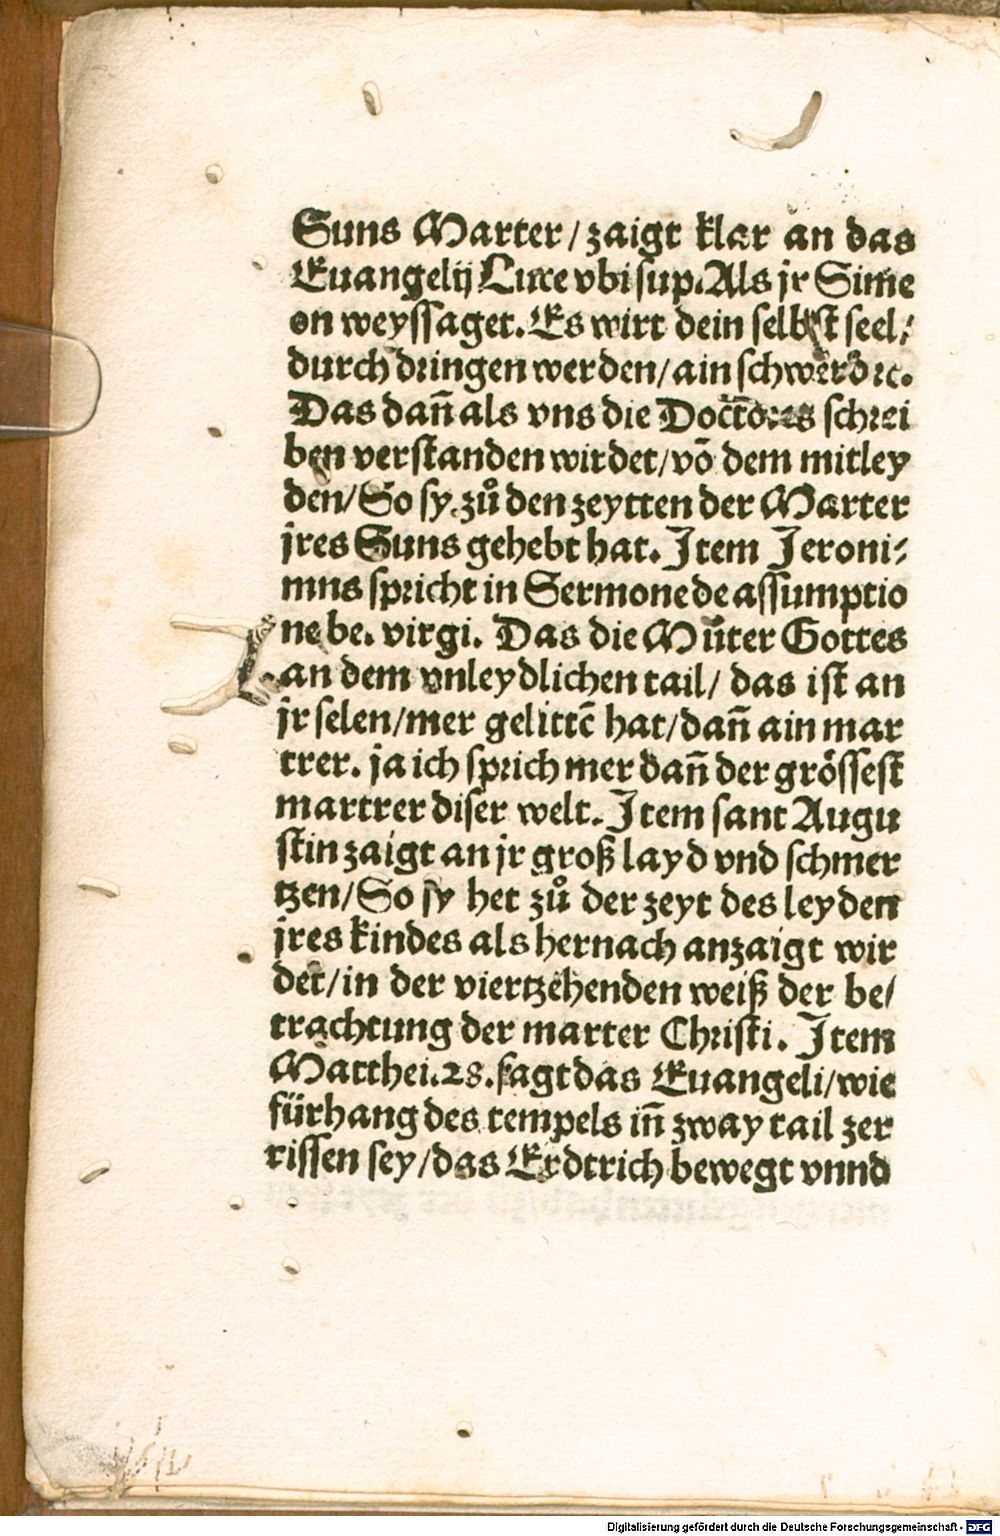 Suns Marter/zaigt klar an das
Euangelij Luce vbi sup. Als jr Sime
on weyssaget. Es wirt dein selbst seel/
durch dringen werden/ain schwerd ꝛc.
Das dañ als vns die Doctores schrei
ben verstanden wirdet/võ dem mitley
den/So sy zů den zeytten der Marter
jres Suns gehebt hat. Item Jeroni-
mns spricht in Sermone de assumptio
ne be. virgi. Das die Můter Gottes
an dem vnleydlichen tail/ das ist an
jr selen/mer gelittẽ hat/dañ ain mar
trer. ja ich sprich mer dañ der grössest
martrer diser welt. Item sant Augu
stin zaigt an jr groß layd vnd schmer
tzen/So sy het zů der zeyt des leyden
jres kindes als hernach anzaigt wir
det/in der viertzehenden weiß der be/
trachtung der marter Christi. Item
Matthei.28.sagt das Euangeli/wie
fürhang des tempels iñ zway tail zer
rissen sey/das Erdtrich bewegt vnnd
Digitalisierung gefördert durch die Deutsche Forschungsgemeinschaft - DFG